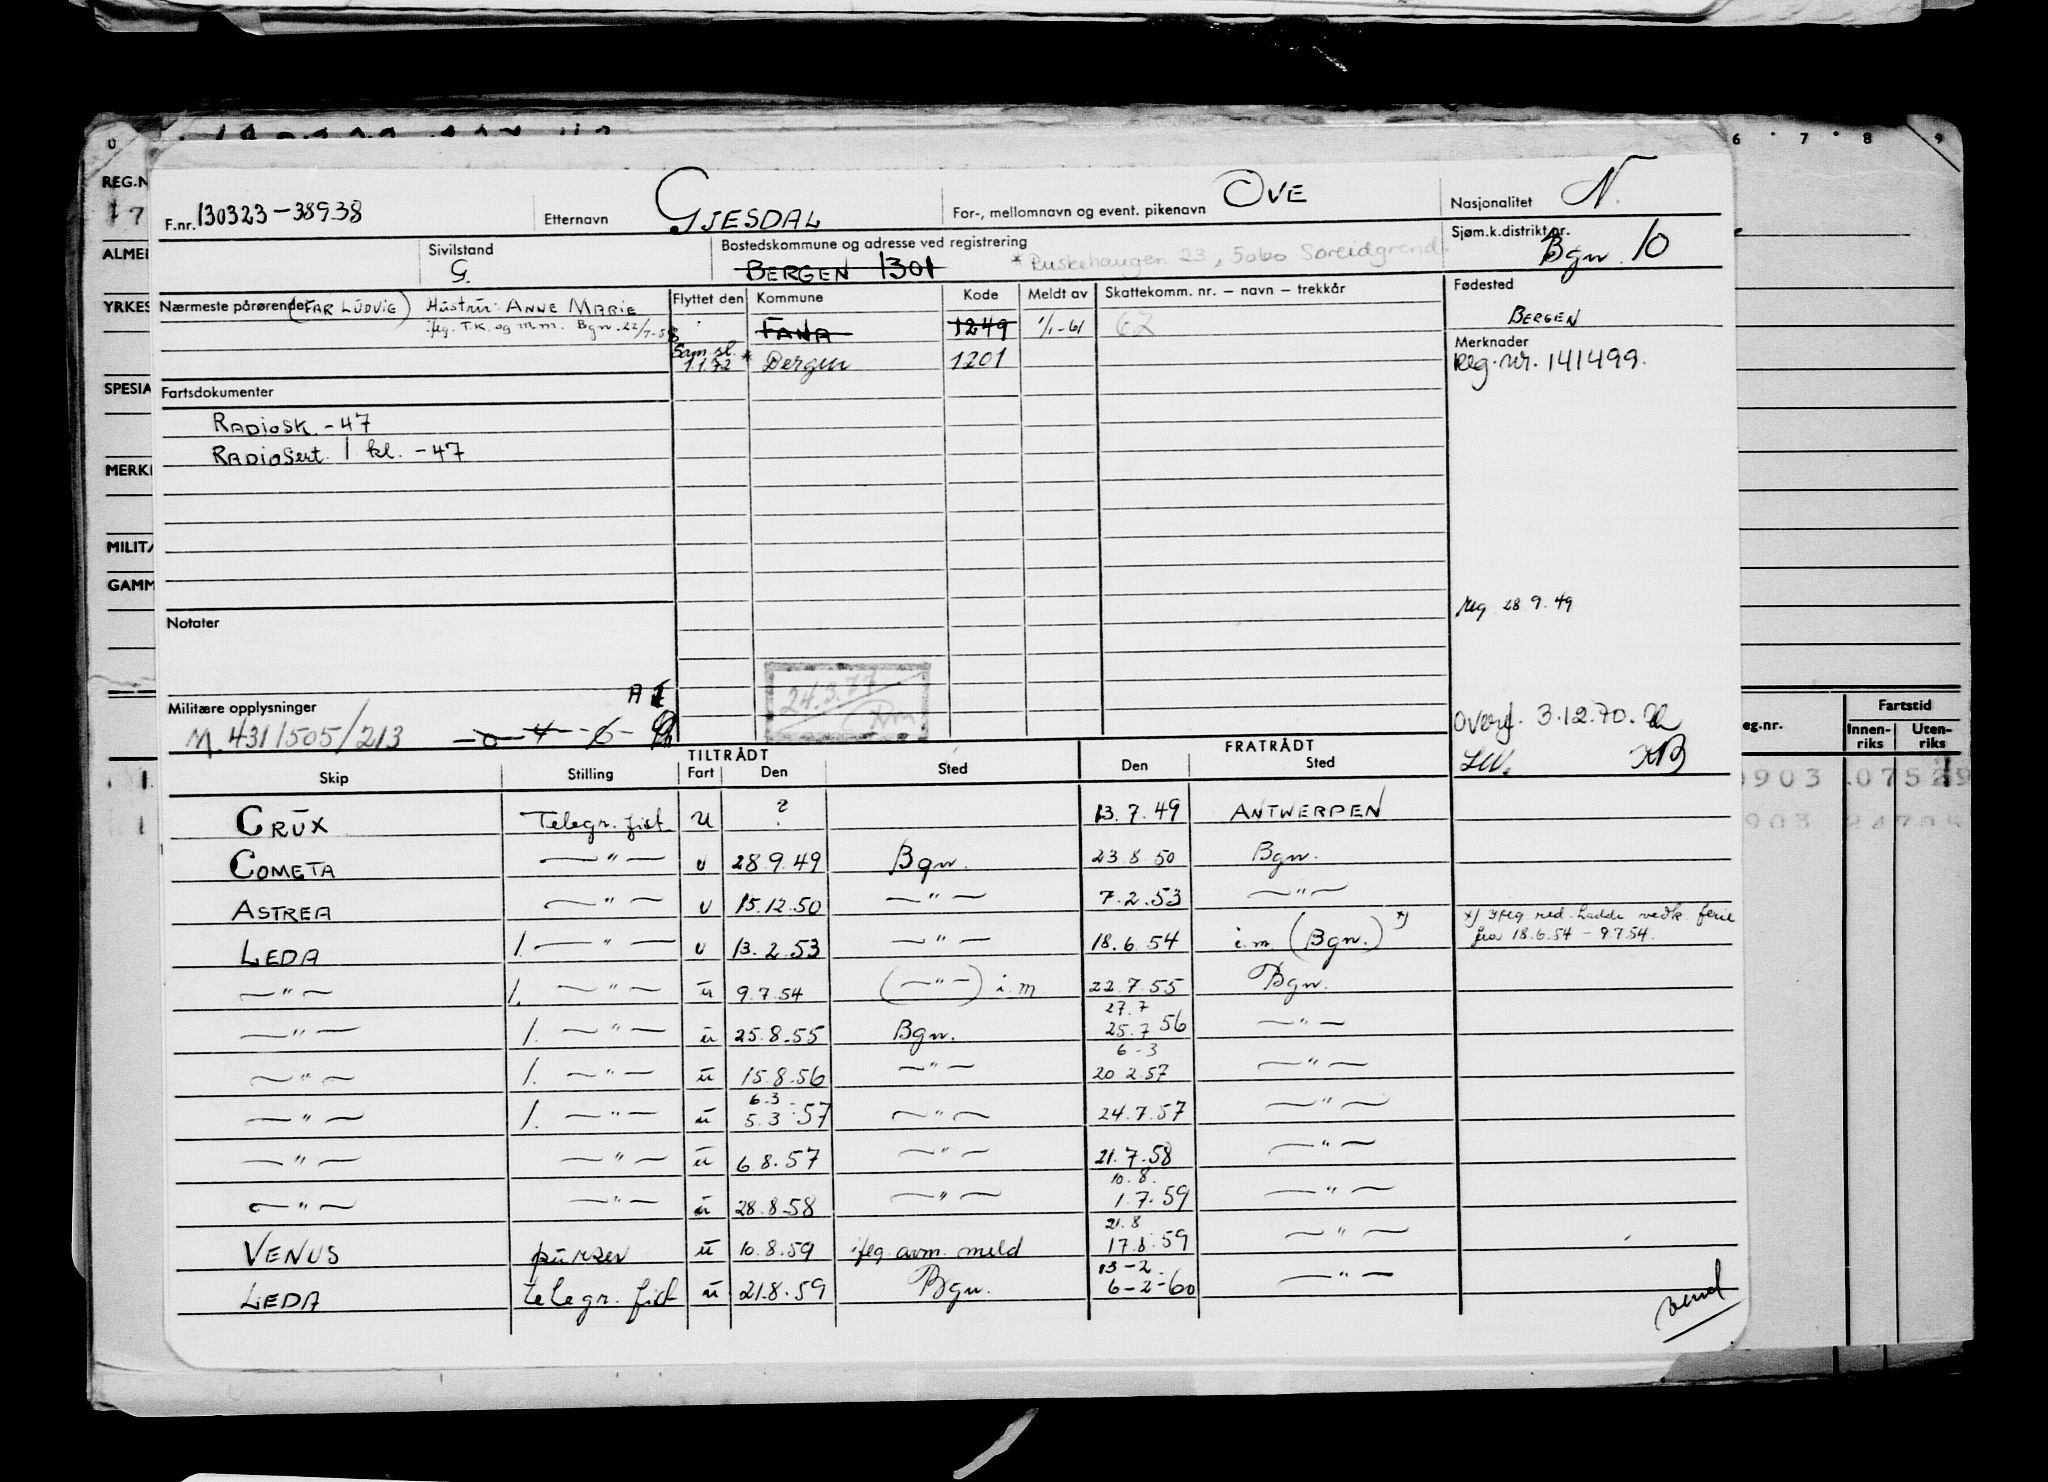 6 7 8 9
0
REG.N
17
ALMEI
YRKES
SPESIA
MERKI
MILITA
GAMM
F.nr. 130323-38938 Etternavn GJESDAL For-, mellomnavn og event. pikenavn OVE Nasjonalitet N.
Sivilstand Bostedskommune og adresse ved registrering Sjøm.k.distrikt nr.
G. BERGEN 1301 * Ruskehaugen 23, 5060 Søreidgrend Bgn. 10
Nærmeste pårørende (FAR LUDVIG) Hustru: ANNE MARIE Flyttet den Kommune Kode Meldt av Skattekomm. nr. – navn – trekkår Fødested
iflg. T.K. og m.m. Bgn. 22/7-58 FANA 1249 1/1-61 67 BERGEN
Sam.sl. 1.1.72 * Bergen 1201 Merknader
Reg.nr. 141499.
Fartsdokumenter
RADIOSK. -47
RADIOSert. 1 kl. -47
reg 28.9.49
Notater
24.3.77
A
Militære opplysninger
M.431/505/213
Overf. 3.12.70.
TILTRÅDT FRATRÅDT
Skip Stilling Fart Den Sted Den Sted
CRUX Telegr.fist U ? 13.7.49 ANTWERPEN
COMETA —"— U 28.9.49 Bgn. 23.8.50 Bgn.
ASTREA —"— U 15.12.50 —"— 7.2.53 —"—
LEDA 1. —"— U 13.2.53 —"— 18.6.54 i.m (Bgn.) x) x) iflg red. hadde vedk. ferie fra 18.6.54 - 9.7.54.
—"— 1. —"— u 9.7.54 (—"—) i.m 22.7.55 Bgn.
—"— 1. —"— u 25.8.55 Bgn. 27.7 25.7 56 —"—
—"— 1. —"— u 15.8.56 —"— 6-3 20.2.57 —"—
—"— 1. —"— u 6.3 5.3.57 —"— 24.7.57 —"—
—"— —"— u 6.8.57 —"— 21.7.58 —"—
—"— —"— u 28.8.58 —"— 10.8. 1.7.59 —"—
VENUS purser u 10.8.59 iflg. avm. meld 21.8 17.8.59 —"—
LEDA telegr. fist u 21.8.59 Bgn. 13-2. 6-2-60 —"—
vend
eg.nr. Fartstid
Innen-riks Uten-riks
0903 07529